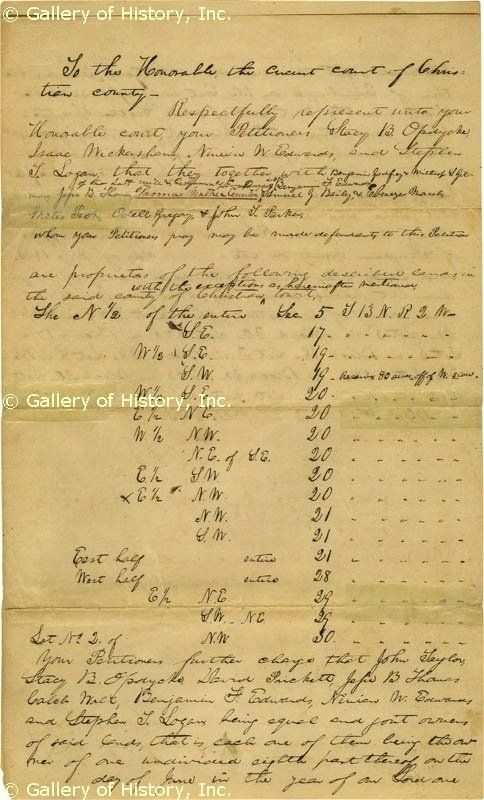 © Gallery of History, Inc.
© Gallery of History, Inc.
To the Honorable the circuit court of Chris-
tian county—
Respectfully represent unto your
Honorable court, your Petitioners Stacy B Opdycke
Isaac Wickersham, Ninian W Edwards, and Stephen
T. Logan, that they together with Benjamin Godfrey
of the last will &
Jesse B Thomas Benjamin F Edwards Samuel G Bailey, & Ebenezer Marsh
Peck, Odell Gregory, & John T.
whom your Petitioners pray may be made defendants to this Petition
are proprietors of the following described lands in
with the exceptions as hereinafter mentioned
the said county of Christian
The N 1/2 of the entire Sec 5 T 13 N. R 2. W—
S.E. 17 - " " " "
W 1/2 S.E. 19 - " " " "
S.W. 19 - Reserve 80 acres off of W.
© Gallery of History, Inc.
© Gallery of History, Inc.
W 1/2 S.E. 20 - " " " "
E 1/2 N.E. 20 " " " "
W 1/2 N.W. 20 " " " "
N.E. of S.E. 20 " " " "
E 1/2 S.W. 20 " " " "
x E 1/2 N.W. 20 " " " "
N.W. 21 " " " "
S.W. 21 " " " "
East half entire 21 " " " "
West half entire 28 " " " "
E 1/2 N.E 29 " " " "
S.W. - NE 29 " " " "
Lot No 2. of N.W 30. " " " "
Your Petitioners further charge that John Taylor,
Stacy B. Opdycke David Prickett, Jesse B Thomas
Caleb Benjamin F. Edwards, Ninian W. Edwards
and Stephen T. Logan, being equal and joint owners
of said lands, that is each one of them being the ow
ner of one undivided eighth part thereof on the
day of June in the year of our Lord one
© Gallery of History, Inc.
© Gallery of History, Inc.